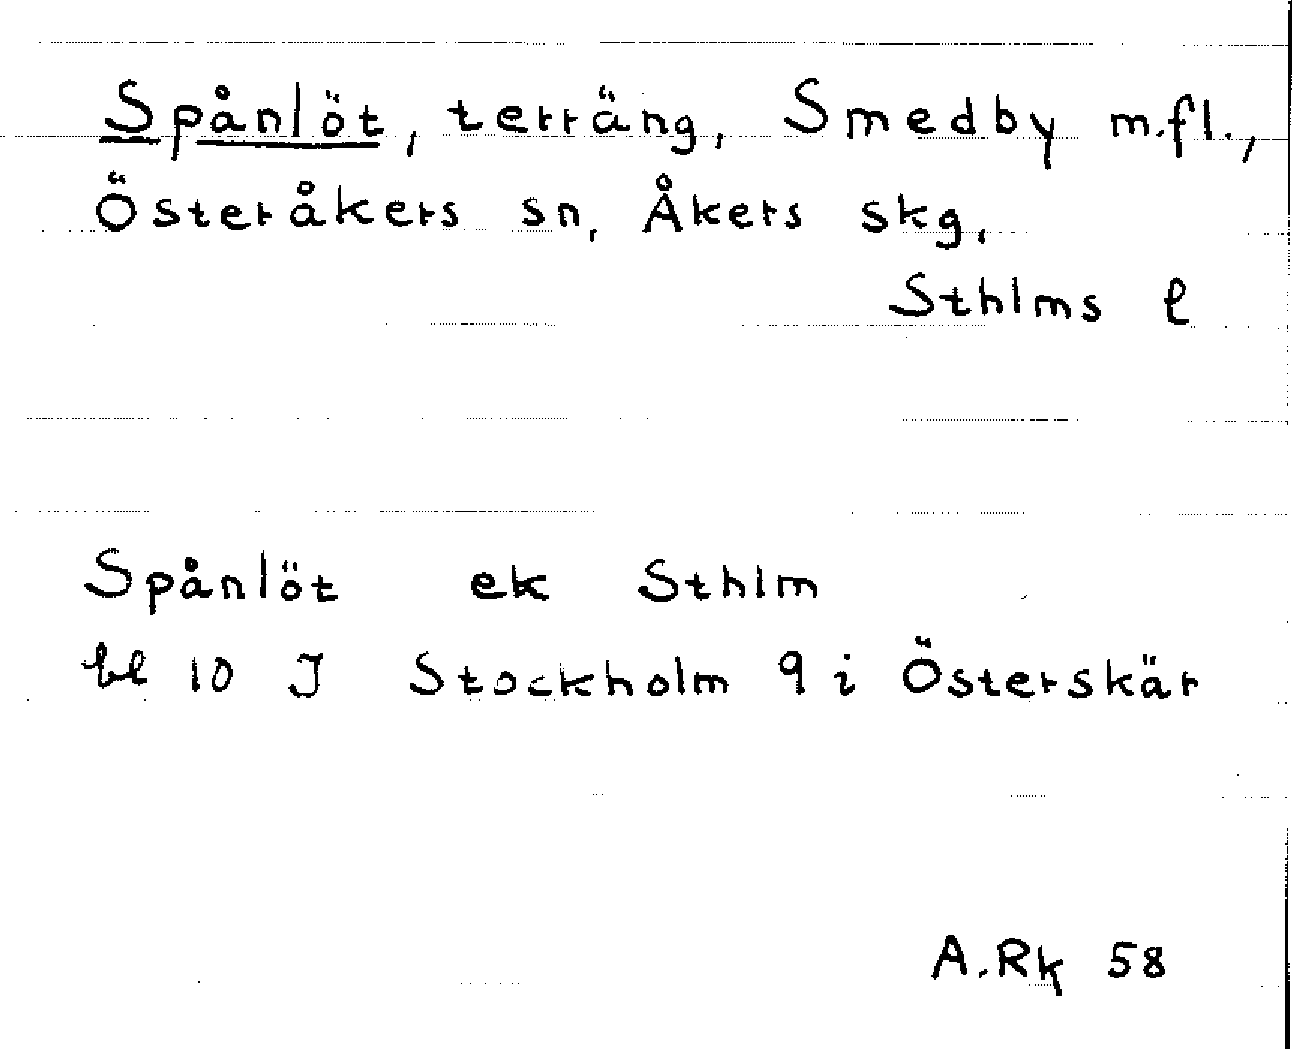 Spånlöt, terräng, Smedby m.fl.,
Österåkers sn, Åkers skg,
Sthlms l
Spånlöt ek Sthlm
bl 10 J Stockholm 9 i Österskär
A.Rk 58